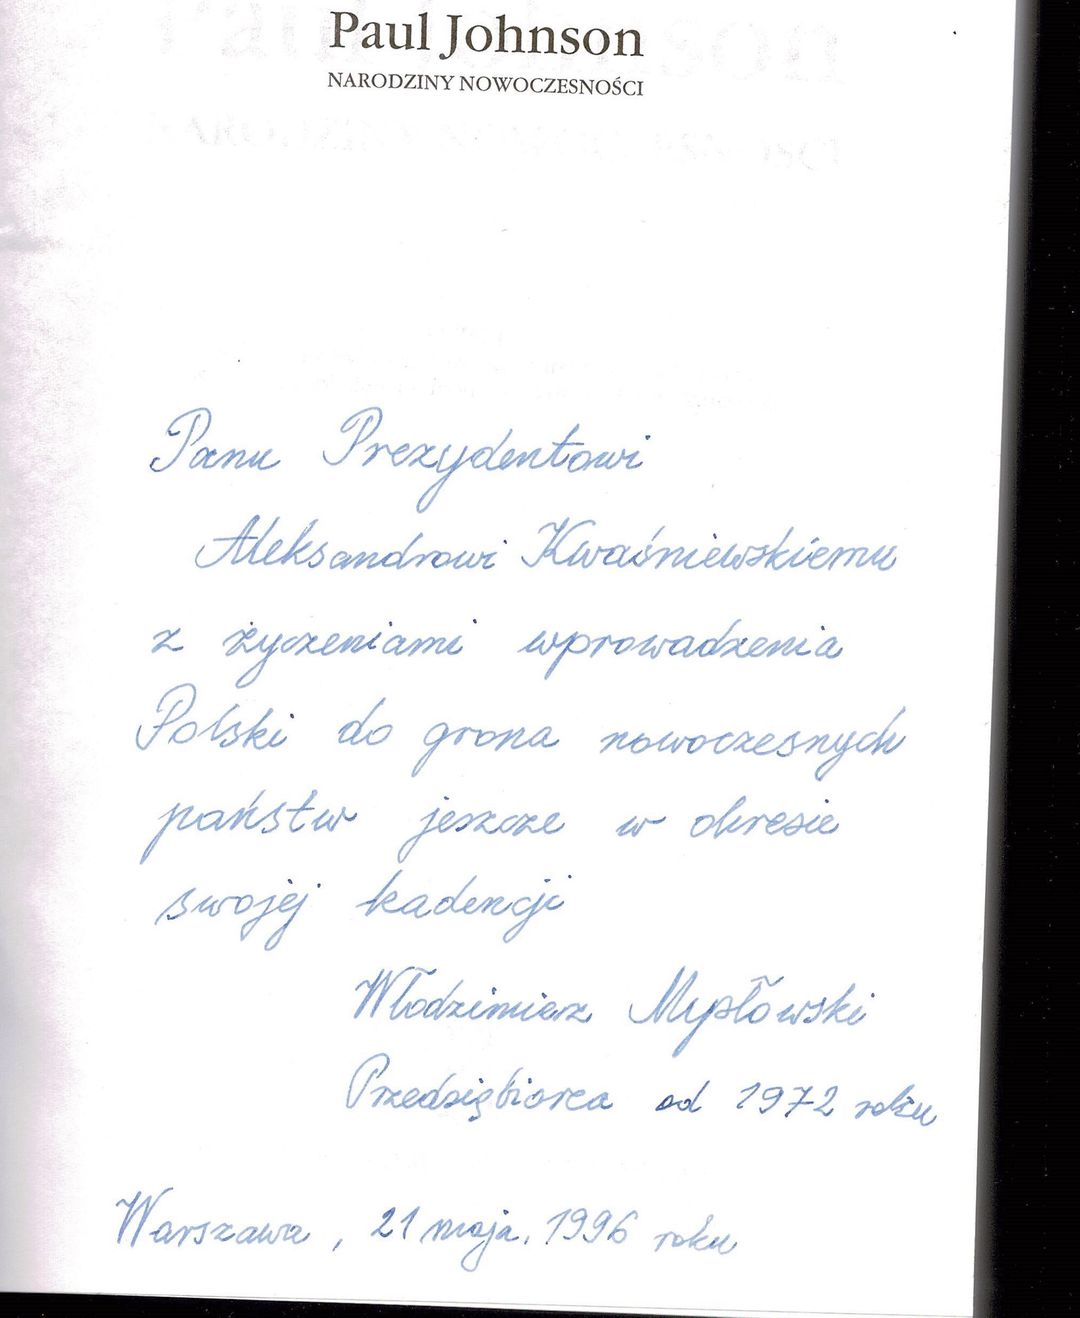 Paul Johnson
NARODZINY NOWOCZESNOŚCI
Panu Prezydentowi
Aleksandrowi Kwaśniewskiemu
z życzeniami wprowadzenia
Polski do grona nowoczesnych
państw jeszcze w okresie
swojej kadencji
Włodzimierz Mysłowski
Przedsiębiorca od 1972 roku
Warszawa, 21 maja, 1996 roku